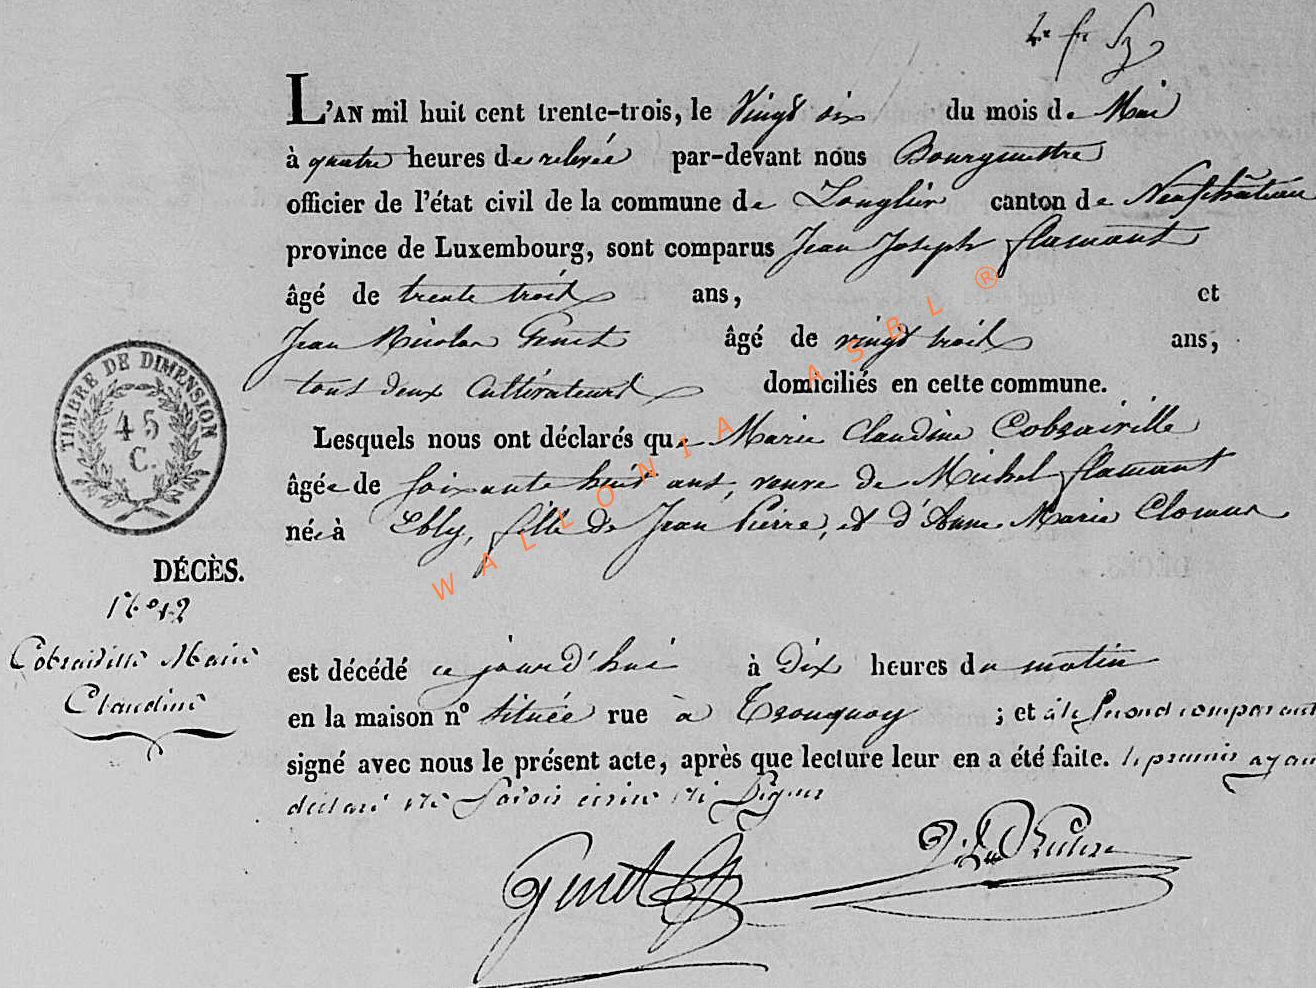 L'AN mil huit cent trente-trois, le Vingt six du mois de Mai
à quatre heures de relevée par-devant nous Bourgmestre
officier de l'état civil de la commune de Longlier canton de Neufchâteau
province de Luxembourg, sont comparus Jean Joseph flamant
âgé de trente trois ans, et
Jean Nicolas Genet âgé de vingt trois ans,
tous deux Cultivateurs domiciliés en cette commune.
Lesquels nous ont déclarés que Marie Claudine Cobraiville
âgée de soixante huit ans, veuve de Michel flamant
née à Ebly, fille de Jean Pierre, et d'Anne Marie
TIMBRE DE DIMENSION
45
C.
DÉCÈS.
Cobraiville Marie
Claudine
est décédé ce jourd'hui à Dix heures du matin
en la maison nº située rue à Tronquoy ; et à le second comparant
signé avec nous le présent acte, après que lecture leur en a été faite. le premier ayant
déclaré ne Savoir écrire ni Signer
Genet
WALLONIA ASBL ®